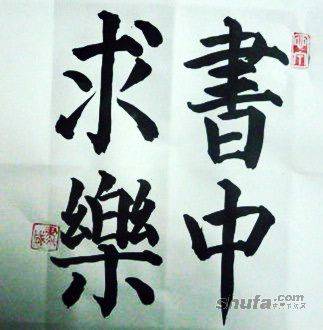 書中
求樂
shufa.com